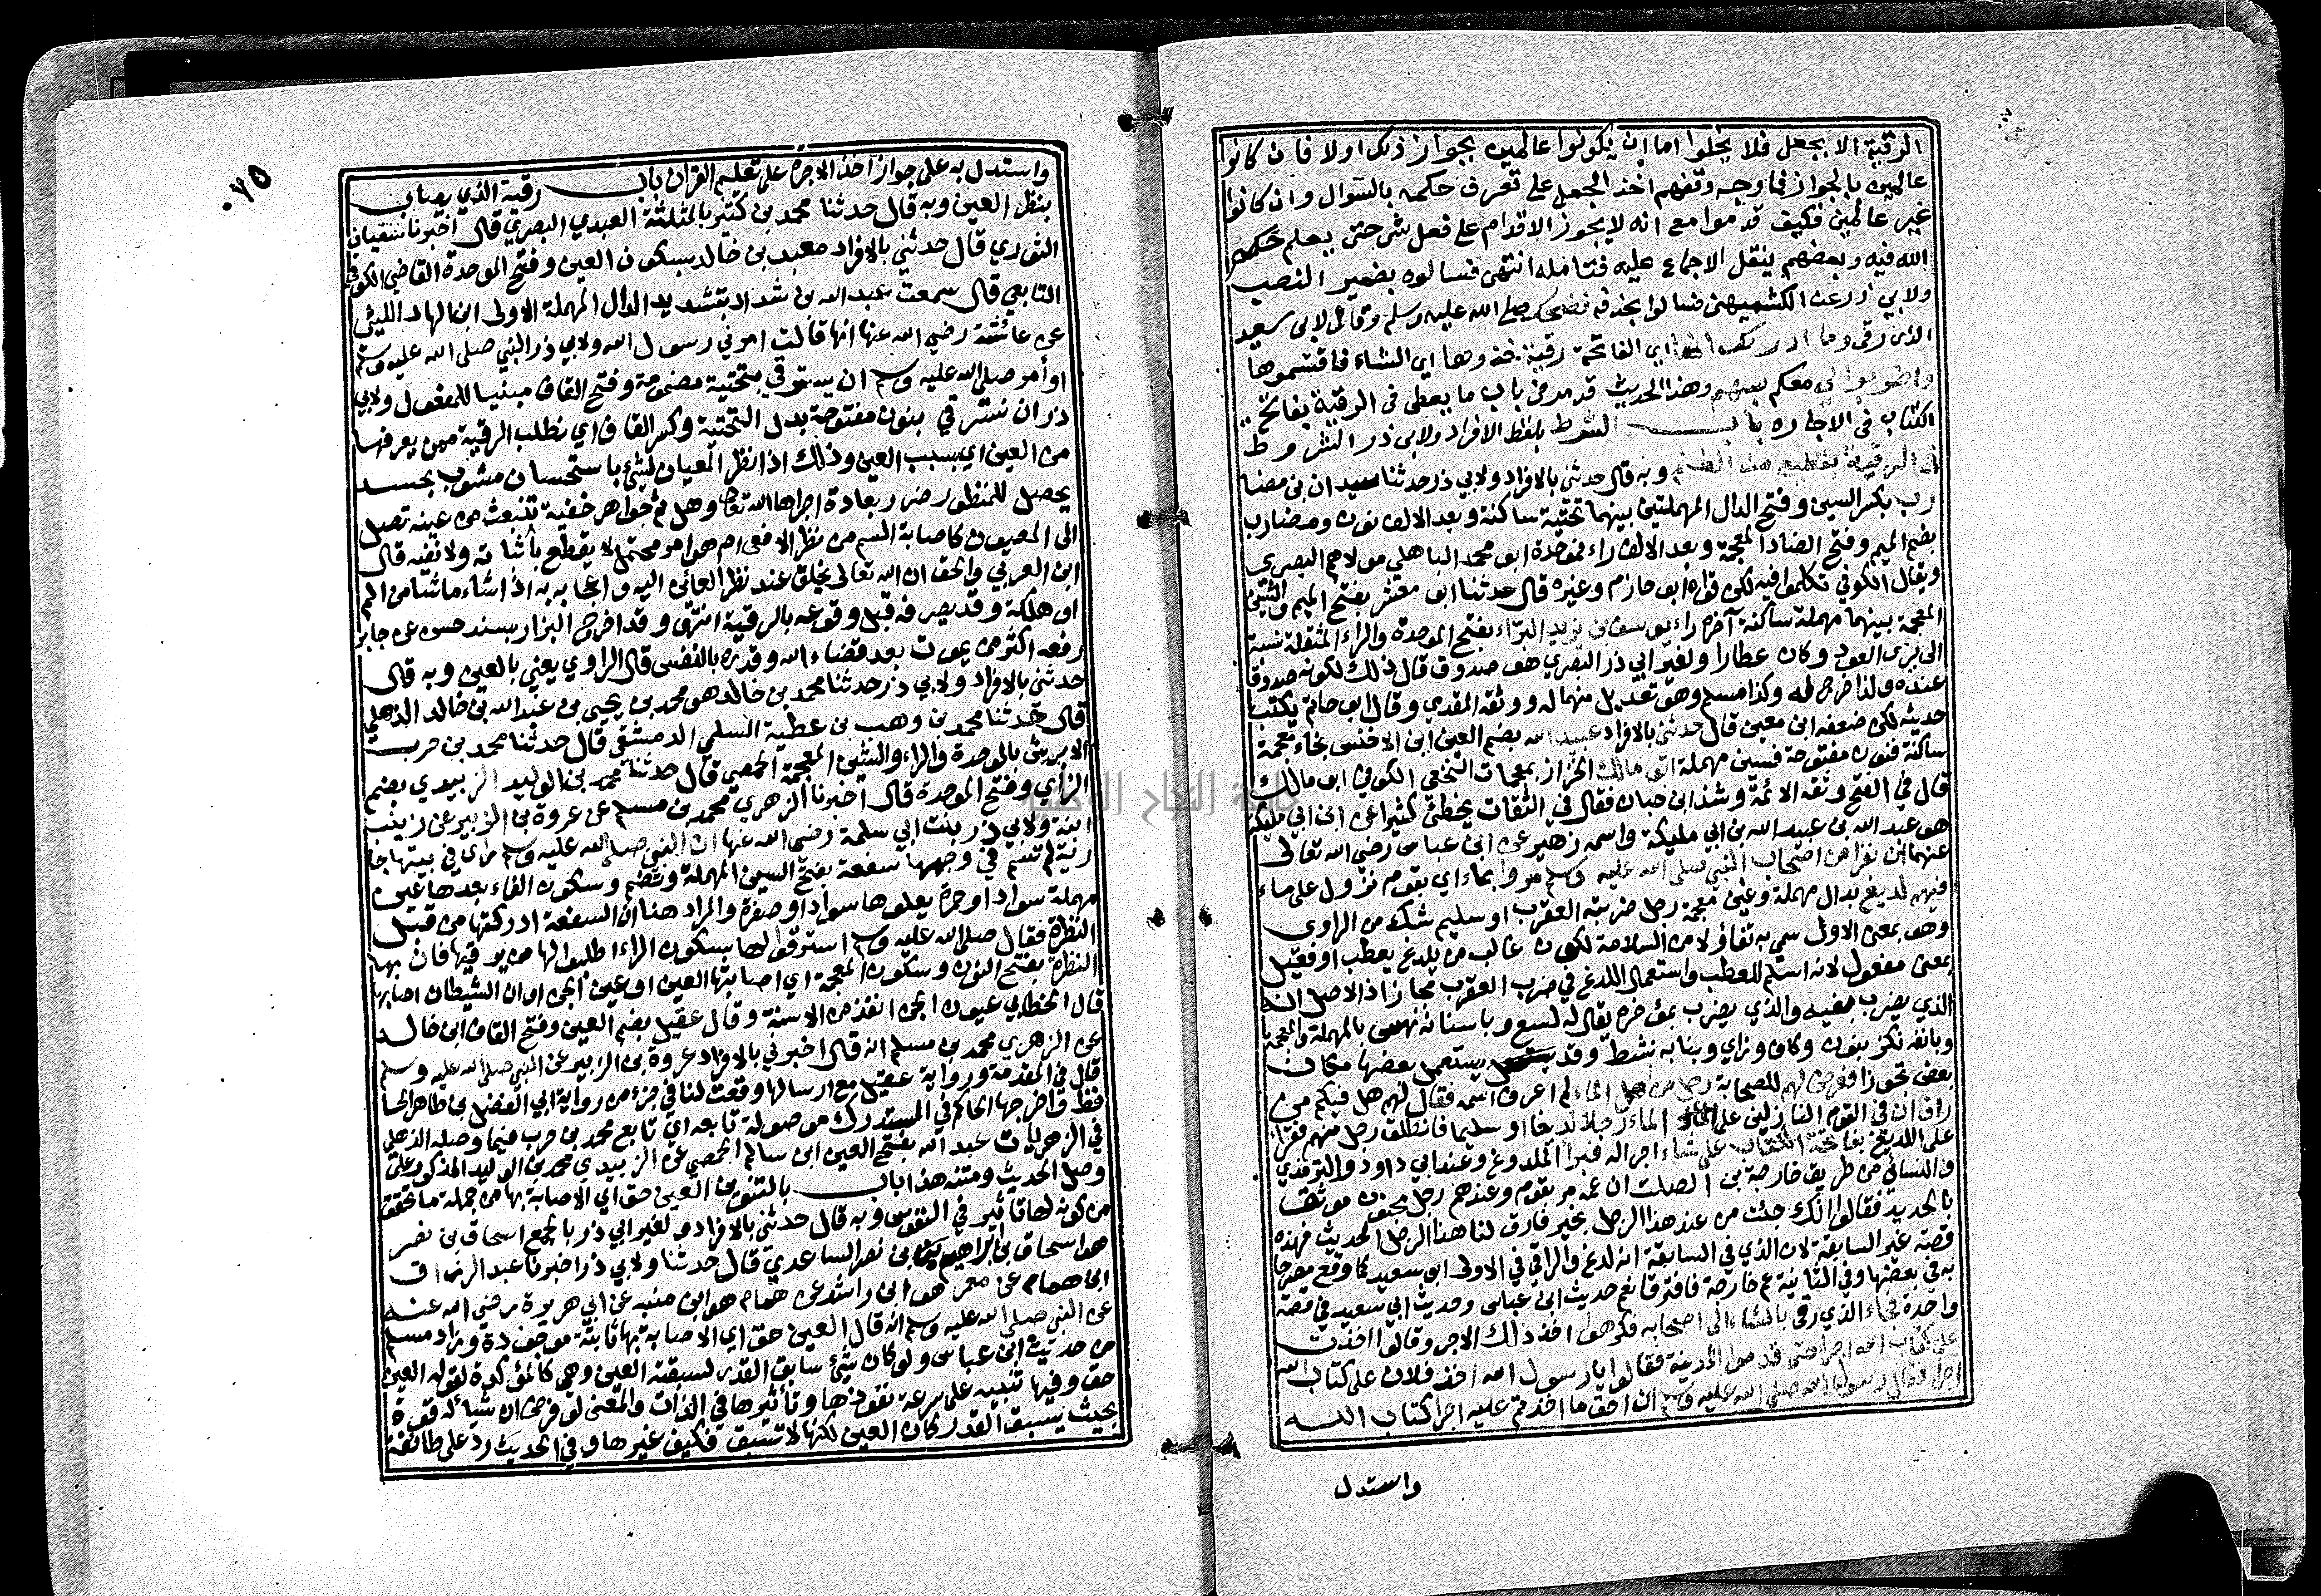 الرقية الا بجعل فلا يخلوا اما ان يكونوا عالمين بجواز ذلك اولا فان كانوا
عالمين بالجواز فما وجه وقفهم اخذ الجعل على تعرف حكمه بالسوال وان كانوا
غير عالمين فكيف قدموا مع انه لا يجوز الاقدام على فعل شي حتى يعلم حكم
الله فيه وبعضهم ينقل الاجماع عليه فتامله انتهى فسالوه بضمير النصب
ولابي ذر عن الكشميهني فسالوا بحذفه فضحك صلى الله عليه وسلم وقال لابي سعيد
الذي رقى وما ادراك انها اي الفاتحة رقية خذوها اي الشاء فاقتسموها
واضربوا لي معكم بسهم وهذا الحديث قد مر في باب ما يعطى في الرقية بفاتحة
الكتاب في الاجاره باب الشرط بلفظ الافراد ولابي ذر الشروط
في الرقية بقطيع من الغنم وبه قال حدثني بالافراد ولابي ذر حدثنا سيدان بن مضا
رب بكسر السين وفتح الدال المهملتين بينهما تحتية ساكنة وبعد الالف نون ومضارب
بضم الميم وفتح الضاد المعجمة وبعد الالف راء فموحدة ابو محمد الباهلي مولاهم البصري
ويقال الكوفي تكلموا فيه لكن قواه ابو حازم وغيره قال حدثنا ابو معشر بفتح الميم والشين
المعجمة بينهما مهملة ساكنة آخره راء يوسف بن يزيد البراء بفتح الموحدة والراء المثقلة نسبة
الى بري العود وكان عطارا ولغير ابي ذر البصري هو صدوق قال ذلك لكونه صدوقا
عنده ولذا خرج له وكذا مسلم وهو تعديل منهما له ووثقه المقدمي وقال ابو حاتم يكتب
حديثه لكن ضعفه ابن معين قال حدثني بالافراد عبيد الله بضم العين ابن الاخنس بخاء معجمة
ساكنة فنون مفتوحة فسين مهملة ابو مالك الخزاز بمعجمات النخعي الكوفي ابو مالك
قال في الفتح وثقه الائمة وشذ ابن حبان فقال في الثقات يخطئ كثيرا عن ابن ابي مليكة
هو عبد الله بن عبيد الله بن ابي مليكة واسمه زهير عن ابن عباس رضي الله تعالى
عنهما ان نفرا من اصحاب النبي صلى الله عليه وسلم مروا بماء اي بقوم نزول على ماء
فيهم لديغ بدال مهملة وغين معجمة رجل ضربته العقرب او سليم شك من الراوي
وهو بمعنى الاول سمي به تفاؤلا من السلامة لكون غالب من يلدغ يعطب او فعيل
بمعنى مفعول لانه اسلم للعطب واستعمال اللدغ في ضرب العقرب مجاز اذ الاصل انه
الذي يضرب بفيه والذي يضرب بمؤخره يقال له لسع وباسنانه نهس بالمهملة والمعجمة
وبانفه نكز بنون وكاف وزاي وبنابه نشط وقد يستعمل بعضها مكان
بعض تجوزا فعرض لهم للصحابة رجل من اهل الماء لم اعرف اسمه فقال لهم هل فيكم من
راق ان في القوم النازلين على الماء رجلا لديغا او سليما فانطلق رجل منهم فقرأ
على اللديغ بفاتحة الكتاب على شاء اجرا له فبرأ الملدوغ وعند ابي داود والترمذي
والنسائي من طريق خارجة بن الصلت ان عمه مر بقوم وعندهم رجل مجنون موثق
بالحديد فقالوا انك جئت من عند هذا الرجل بخير فارق لنا هذا الرجل الحديث فهذه
قصة غير السابقة لان الذي في السابقة انه لدغ والراقي في الاولى ابو سعيد كما وقع مصرحا
به في بعضها وفي الثانية عم خارجة فافترقا نعم حديث ابن عباس وحديث ابي سعيد في قصة
واحدة فجاء الذي رقى بالشاء الى اصحابه فكرهوا اخذ ذلك الاجر وقالوا اخذت
على كتاب الله اجرا حتى قدموا المدينة فقالوا يا رسول الله اخذ فلان على كتاب الله
اجرا فقال رسول الله صلى الله عليه وسلم ان احق ما اخذتم عليه اجرا كتاب الله
واستدل
٧٥
واستدل به على جواز اخذ الاجرة على تعليم القران باب رقية الذي يصاب
بنظر العين وبه قال حدثنا محمد بن كثير بالمثلثة العبدي البصري قال اخبرنا سفيان
الثوري قال حدثني بالافراد معبد بن خالد بسكون العين وفتح الموحدة القاضي الكوفي
التابعي قال سمعت عبد الله بن شداد بتشديد الدال المهملة الاولى ابن الهاد الليثي
عن عائشة رضي الله عنها انها قالت امرني رسول الله ولابي ذر النبي صلى الله عليه وسلم
او أمر صلى الله عليه وسلم ان يسترقي بتحتية مضمومة وفتح القاف مبنيا للمفعول ولابي
ذر ان نسترقي بنون مفتوحة بدل التحتية وكسر القاف اي نطلب الرقية ممن يعرفها
من العين اي بسبب العين وذلك اذا نظر المعيان لشئ باستحسان مشوب بحسد
يحصل للمنظور ضرر بعادة اجراها الله تعالى وهل ثم جواهر خفية تنبعث من عينه تصل
الى المعيون كاصابة السم من نظر الافعى ام هو امر محتمل لا يقطع باثباته ولا نفيه قال
ابن العربي والحق ان الله تعالى يخلق عند نظر العائن اليه واعجابه به اذا شاء ما شاء من الم
او هلكة وقد يصرفه قبل وقوعه بالرقية انتهى وقد اخرج البزار بسند حسن عن جابر
رفعه اكثر من يموت بعد قضاء الله وقدره بالنفس قال الراوي يعني بالعين وبه قال
حدثني بالافراد ولابي ذر حدثنا محمد بن خالد هو محمد بن يحيى بن عبد الله بن خالد الذهلي
قال حدثنا محمد بن وهب بن عطية السلمي الدمشقي قال حدثنا محمد بن حرب
الابرش بالموحدة والراء والشين المعجمة الحمصي قال حدثنا محمد بن الوليد الزبيدي بضم
الزاي وفتح الموحدة قال اخبرنا الزهري محمد بن مسلم عن عروة بن الزبير عن زينب
ابنة ولابي ذر بنت ابي سلمة رضي الله عنها ان النبي صلى الله عليه وسلم رأى في بيتها جا
رية لم تسم في وجهها سفعة بفتح السين المهملة وتضم وسكون الفاء بعدها عين
مهملة سواد او حمرة يعلوها سواد او صفرة والمراد هنا ان السفعة ادركتها من قبل
النظرة فقال صلى الله عليه وسلم استرقوا لها بسكون الراء اطلبوا لها من يرقيها فان بها
النظرة بفتح النون وسكون المعجمة اي اصابتها العين او عين الجن او ان الشيطان اصابها
قال الخطابي عيون الجن انفذ من الاسنة وقال عقيل بضم العين وفتح القاف ابن خالد
عن الزهري محمد بن مسلم انه قال اخبرني بالافراد عروة بن الزبير عن النبي صلى الله عليه وسلم
قال في المقدمة ورواية عقيل مع ارسالها وقعت لنا في جزء من رواية ابي الفضل بن طاهر الحا
فظ واخرجها الحاكم في المستدرك موصولة تابعه اي تابع محمد بن حرب فيما وصله الذهلي
في الزهريات عبد الله بفتح العين ابن سالم الحمصي عن الزبيدي محمد بن الوليد المذكور على
وصل الحديث ومتنه هذا باب بالتنوين العين حق اي الاصابة بها من جملة ما تحقق
من كونه لها تاثير في النفوس وبه قال حدثني بالافراد ولغير ابي ذر بالجمع اسحاق بن نصر
هو اسحاق بن ابراهيم بن نصر الساعدي قال حدثنا ولابي ذر اخبرنا عبد الرزاق
ابن همام عن معمر هو ابن راشد عن همام هو ابن منبه عن ابي هريرة رضي الله عنه
عن النبي صلى الله عليه وسلم انه قال العين حق اي الاصابة بها ثابتة موجودة وزاد مسلم
من حديث ابن عباس ولو كان شئ سابق القدر لسبقته العين وهي كالمؤكدة لقوله العين
حق وفيها تنبيه على سرعة نفوذها وتأثيرها في الذات والمعنى لو فرض ان شيأ له قوة
بحيث يسبق القدر كان العين لكنها لا تسبق فكيف غيرها وفي الحديث رد على طائفة